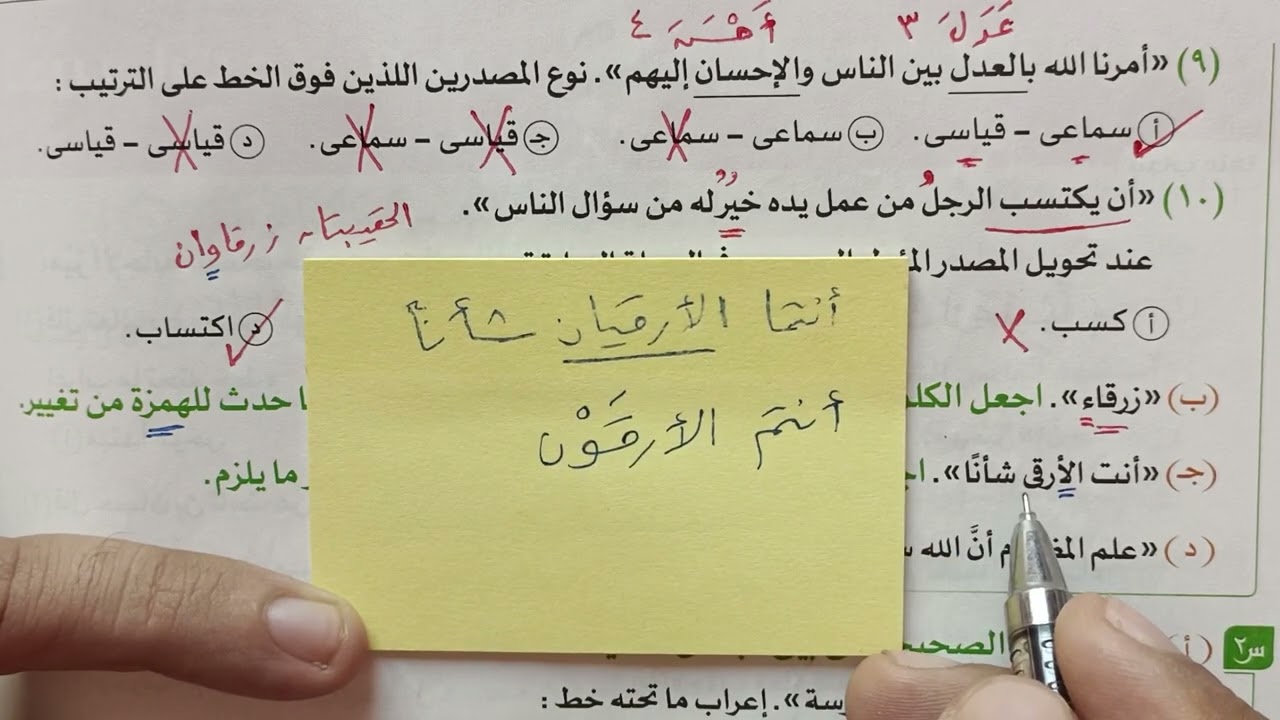 عَدَلَ ٣ أَحْسَنَ ٤
(٩) «أمرنا الله بالعدل بين الناس والإحسان إليهم». نوع المصدرين اللذين فوق الخط على الترتيب :
أ سماعى – قياسى. ب سماعى – سماعى. جـ قياسى – سماعى. د قياسى – قياسى.
(١٠) «أن يكتسب الرجلُ من عمل يده خيرٌ له من سؤال الناس».
الحقيبتان زرقاوان
عند تحويل المصدر
أ كسب. د اكتساب.
(ب) «زرقاء». اجعل حدث للهمزة من تغيير.
(جـ) «أنت الأرقى شأنًا». ما يلزم.
(د) «علم أنَّ الله
أنتما الأرقيان شأنًا
أنتم الأرقَوْن
س٢ (أ)
إعراب ما تحته خط :